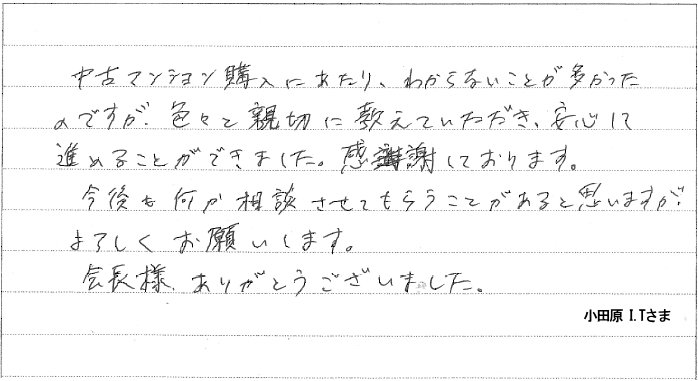 中古マンション購入にあたり、わからないことが多かった
のですが、色々と親切に教えていただき、安心して
進めることができました。感謝しております。
今後も何か相談させてもらうことがあると思いますが、
よろしくお願いします。
会長様、ありがとうございました。
小田原 I.Tさま